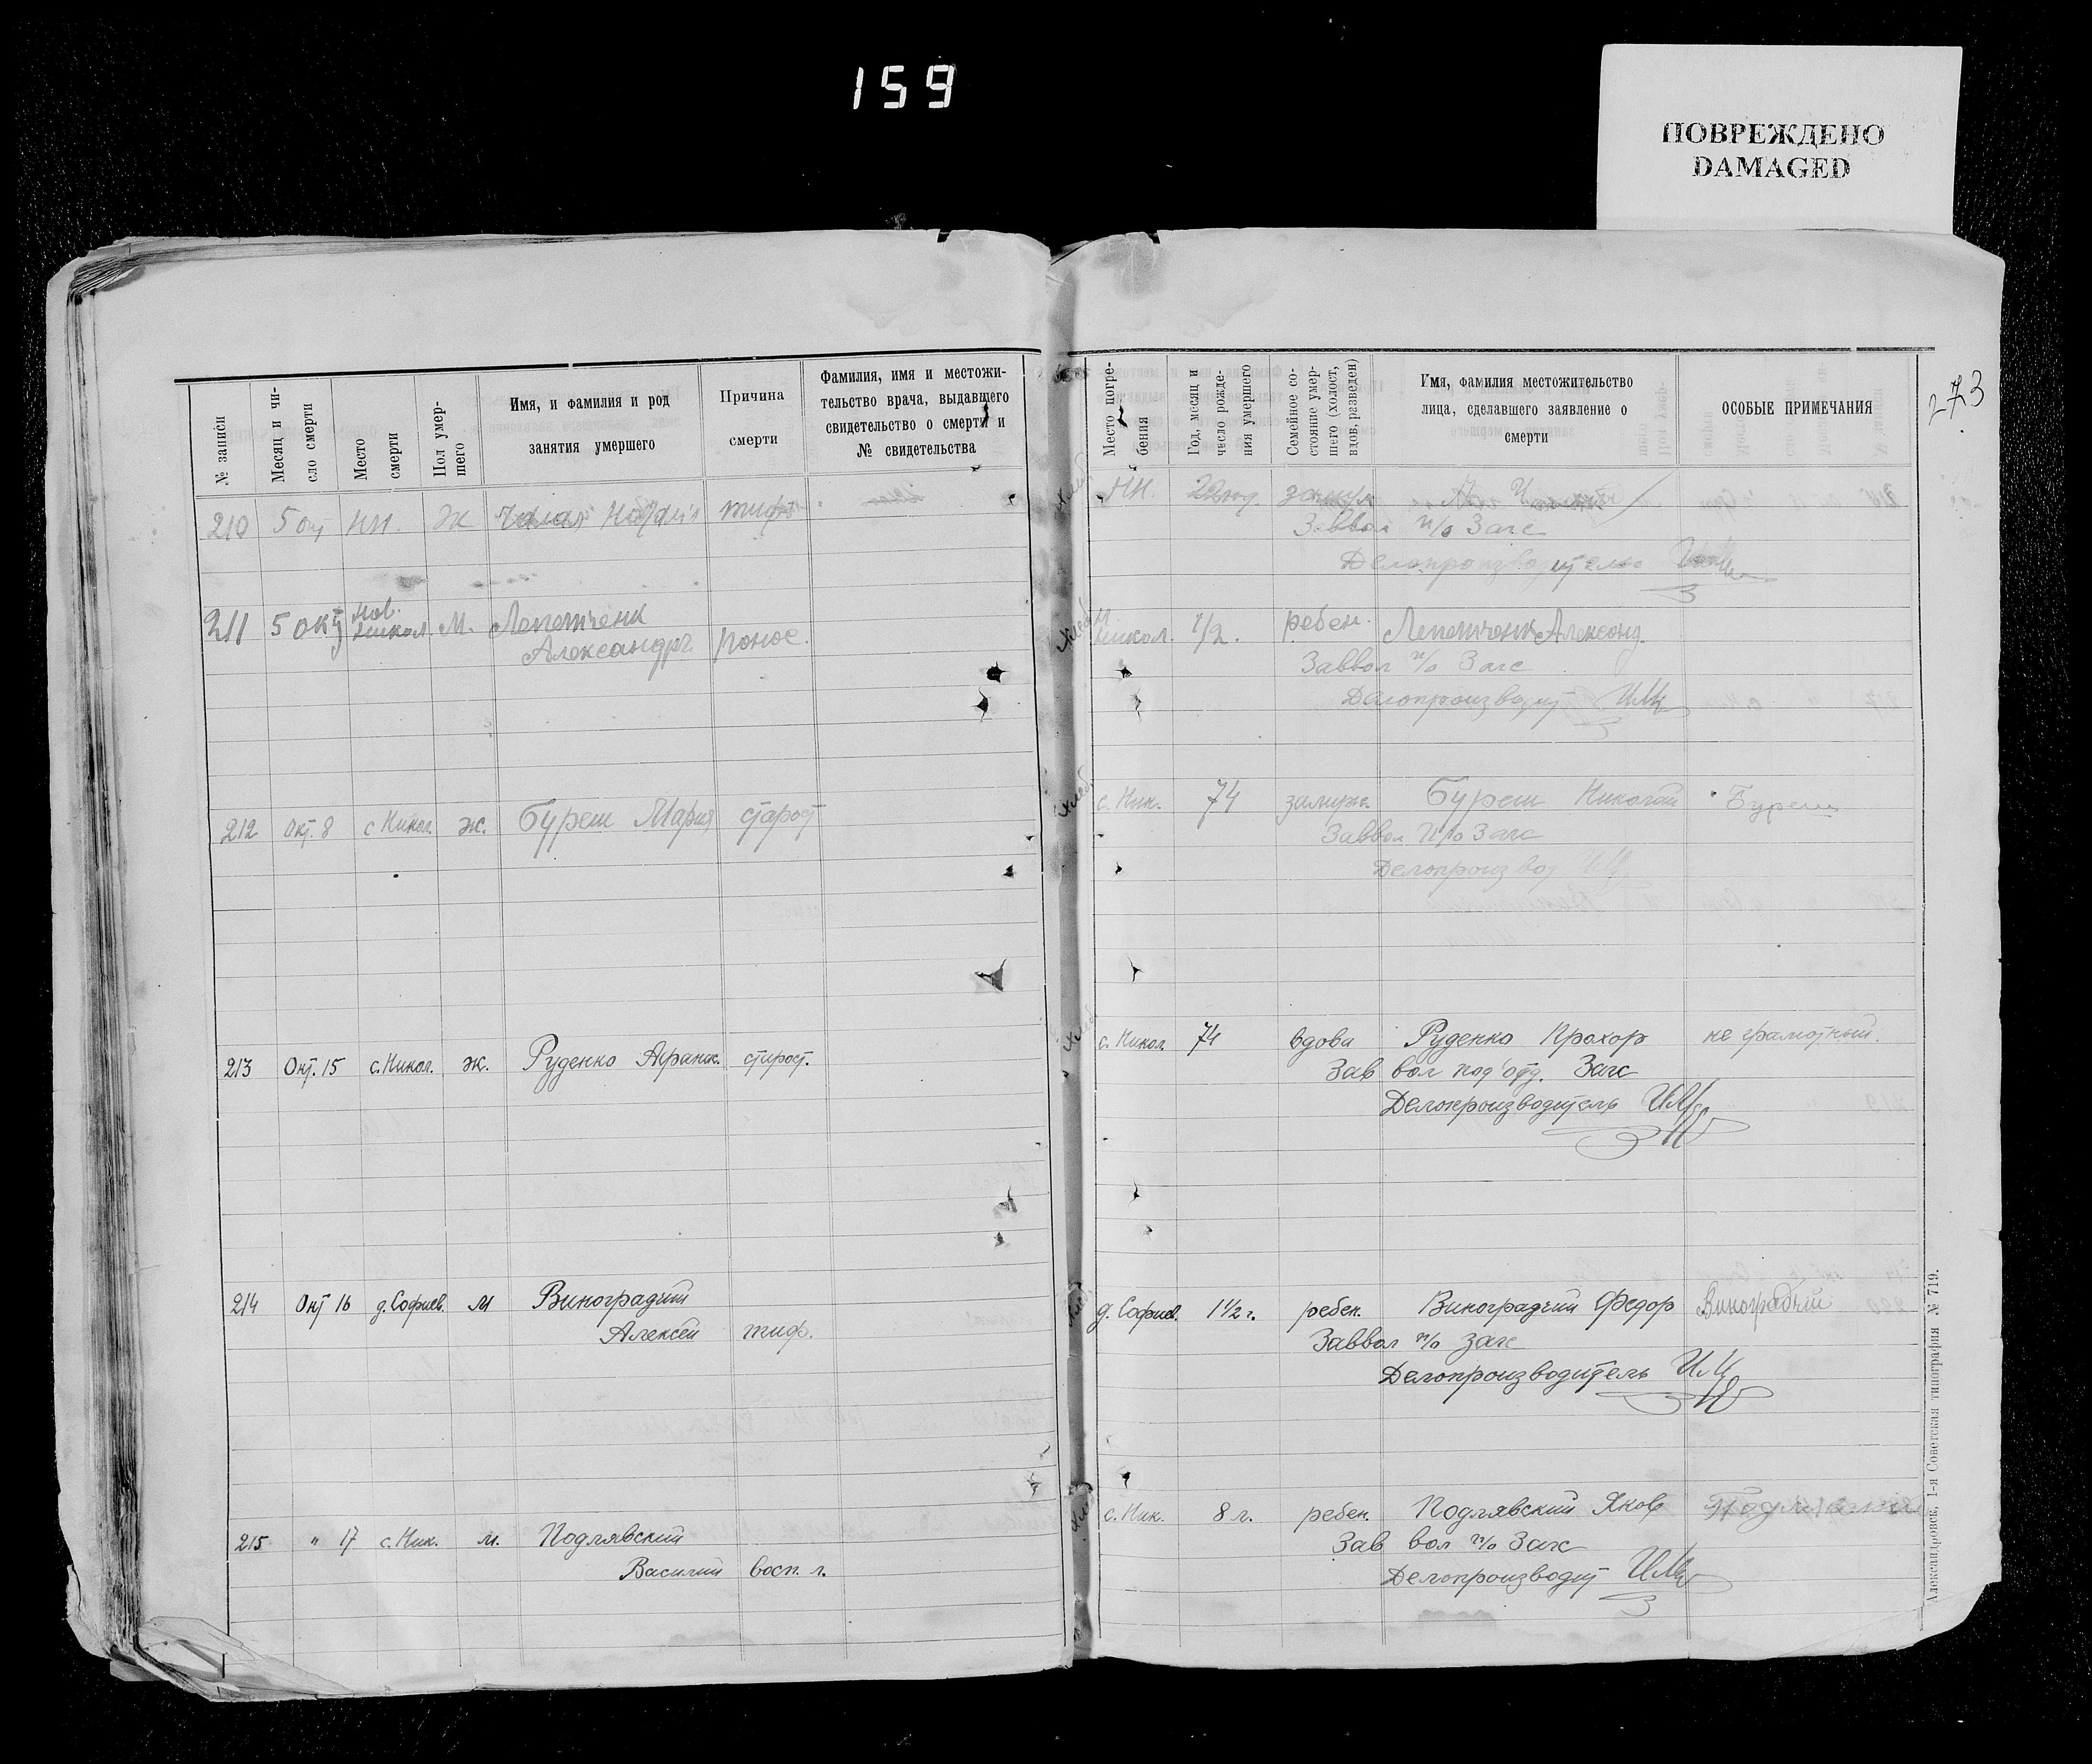 159
ПОВРЕЖДЕНО
DAMAGED
273
№ записи
Месяц и чи-
сло смерти
Место
смерти
Пол умер-
шего
Имя, и фамилия и род
занятия умершего
Причина
смерти
Фамилия, имя и местожи-
тельство врача, выдавщего
свидетельство о смерти и
№ свидетельства
Место погре-
бения
Год, месяц и
число рожде-
ния умершего
Семейное со-
стояние умер-
шего (холост,
вдов, разведен)
Имя, фамилия местожительство
лица, сделавшего заявление о
смерти
ОСОБЫЕ ПРИМЕЧАНИЯ
210 5 ок НН. Ж тиф НН. 22 год.
Заввол п/о Загс
Делопроизводитель
211 5 окт Нов. Никол. М. Лепетченк
Александр. понос. Н Никол. 1/2. ребен. Лепетченк Александ.
Заввол п/о Загс
Делопроизводит
212 Окт. 8 с Никол. ж. Буреш Мария старост с. Ник. 74 замуж. Буреш Николай Буреш
Заввол п/о Загс
Делопроизвод
213 Окт. 15 с. Никол. ж. Руденко старост. с. Никол. 74 вдова Руденко Прохор не грамотный.
Зав вол под'отд. Загс
Делопроизводитель
214 Окт 16 д. Софиев. м Виноградчий
Алексей тиф. д. Софиев. 1 1/2 г. ребен. Виноградчий Федор Виноградчий
Заввол п/о загс
Делопроизводитель
215 " 17 с. Ник. м. Подлявский
Василий восп. л. с. Ник. 8 г. ребен. Подлявский Яков
Зав вол п/о Загс
Делопроизводит
Александровск, 1-я Советская типография № 719.